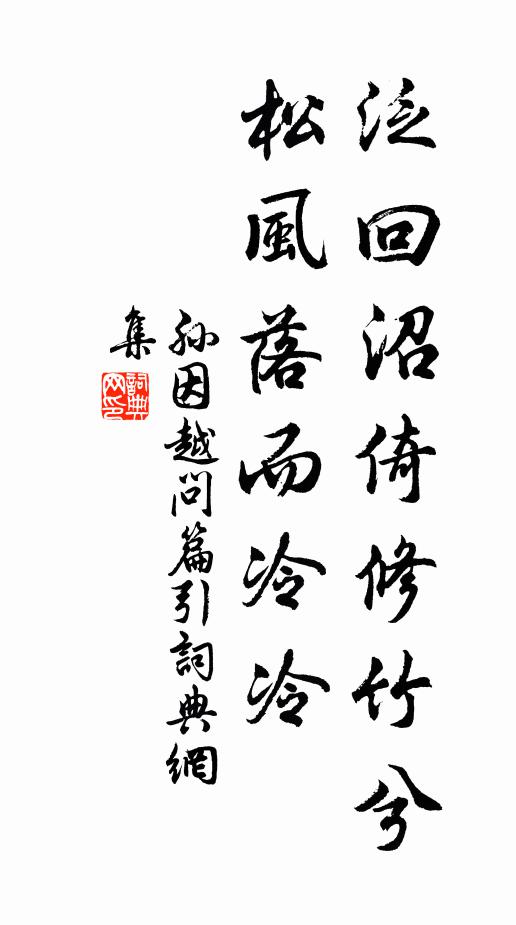 泛回沼倚修竹兮
松風落而冷冷
孙因越问篇引詞典網
集
詞典
网印